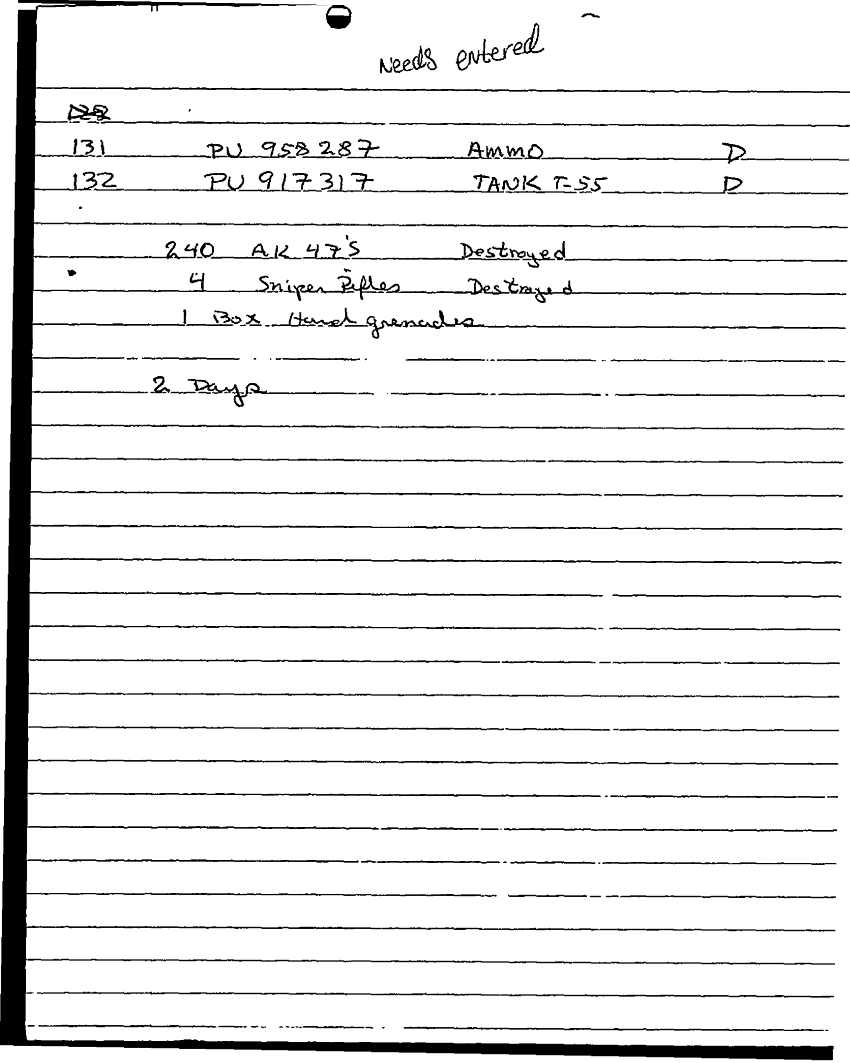 Needs entered
131 PU 958287 AMMO D
132 PU 917317 TANK T-55 D
240 AK 47'S Destroyed
4 Sniper Rifles Destroyed
1 Box Hand grenades
2 Days